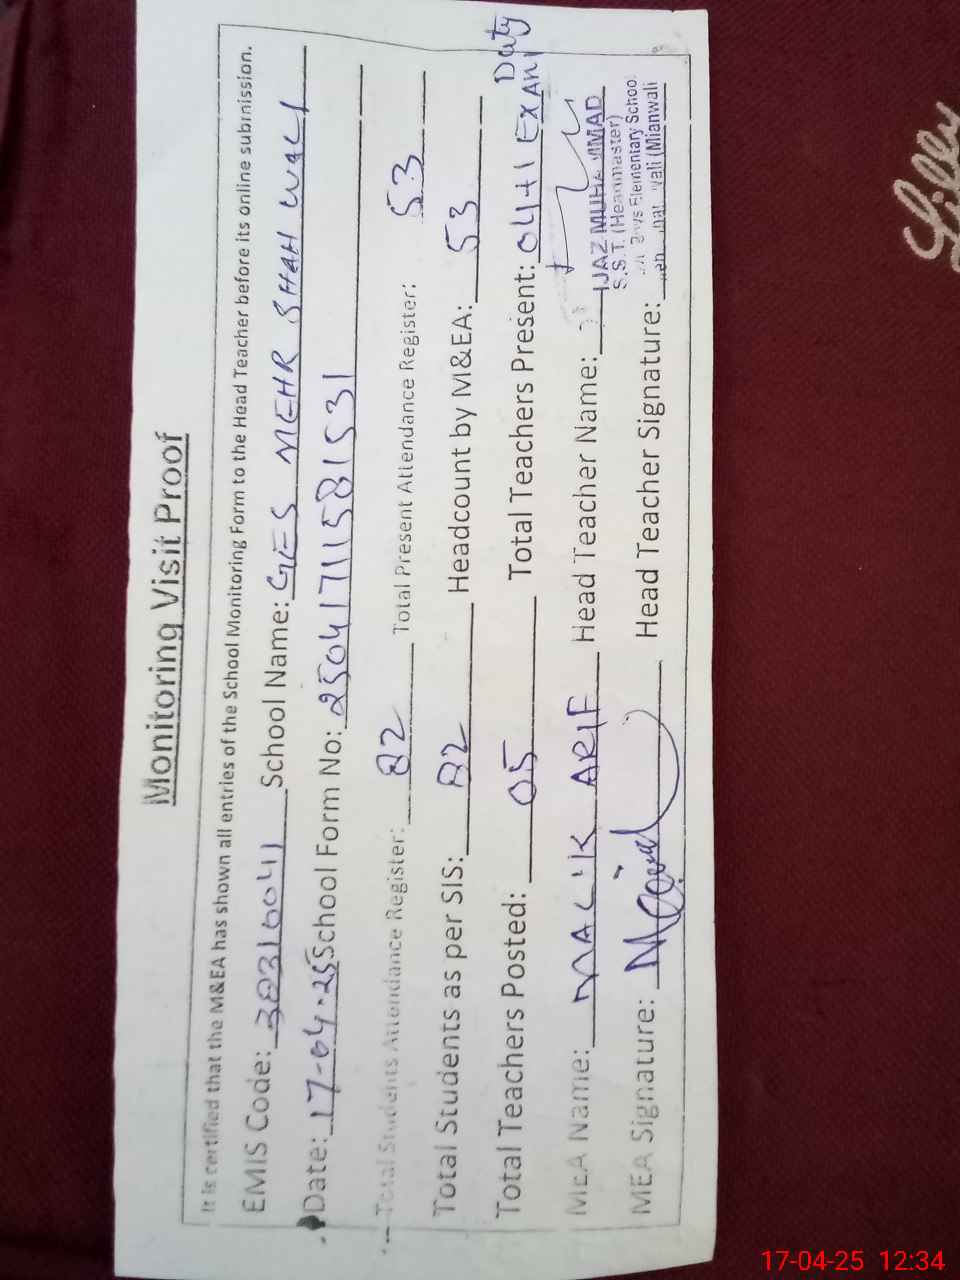 Monitoring Visit Proof
It is certified that the M&EA has shown all entries of the School Monitoring Form to the Head Teacher before its online submission.
EMIS Code: 38310041 School Name: GES MEHR SHAH Wali
Date: 17-04-25 School Form No: 25041711581531
Total Students Attendance Register: 82 Total Present Attendance Register: 53
Total Students as per SIS: 82 Headcount by M&EA: 53
Total Teachers Posted: 05 Total Teachers Present: 04+1 EXAM Duty
MEA Name: MALIK ARIF Head Teacher Name: IJAZ MUHAMMAD
S.S.T. (Headmaster)
Boys Elementary School
Wali (Mianwali
MEA Signature: Head Teacher Signature:
Lilly
17-04-25 12:34